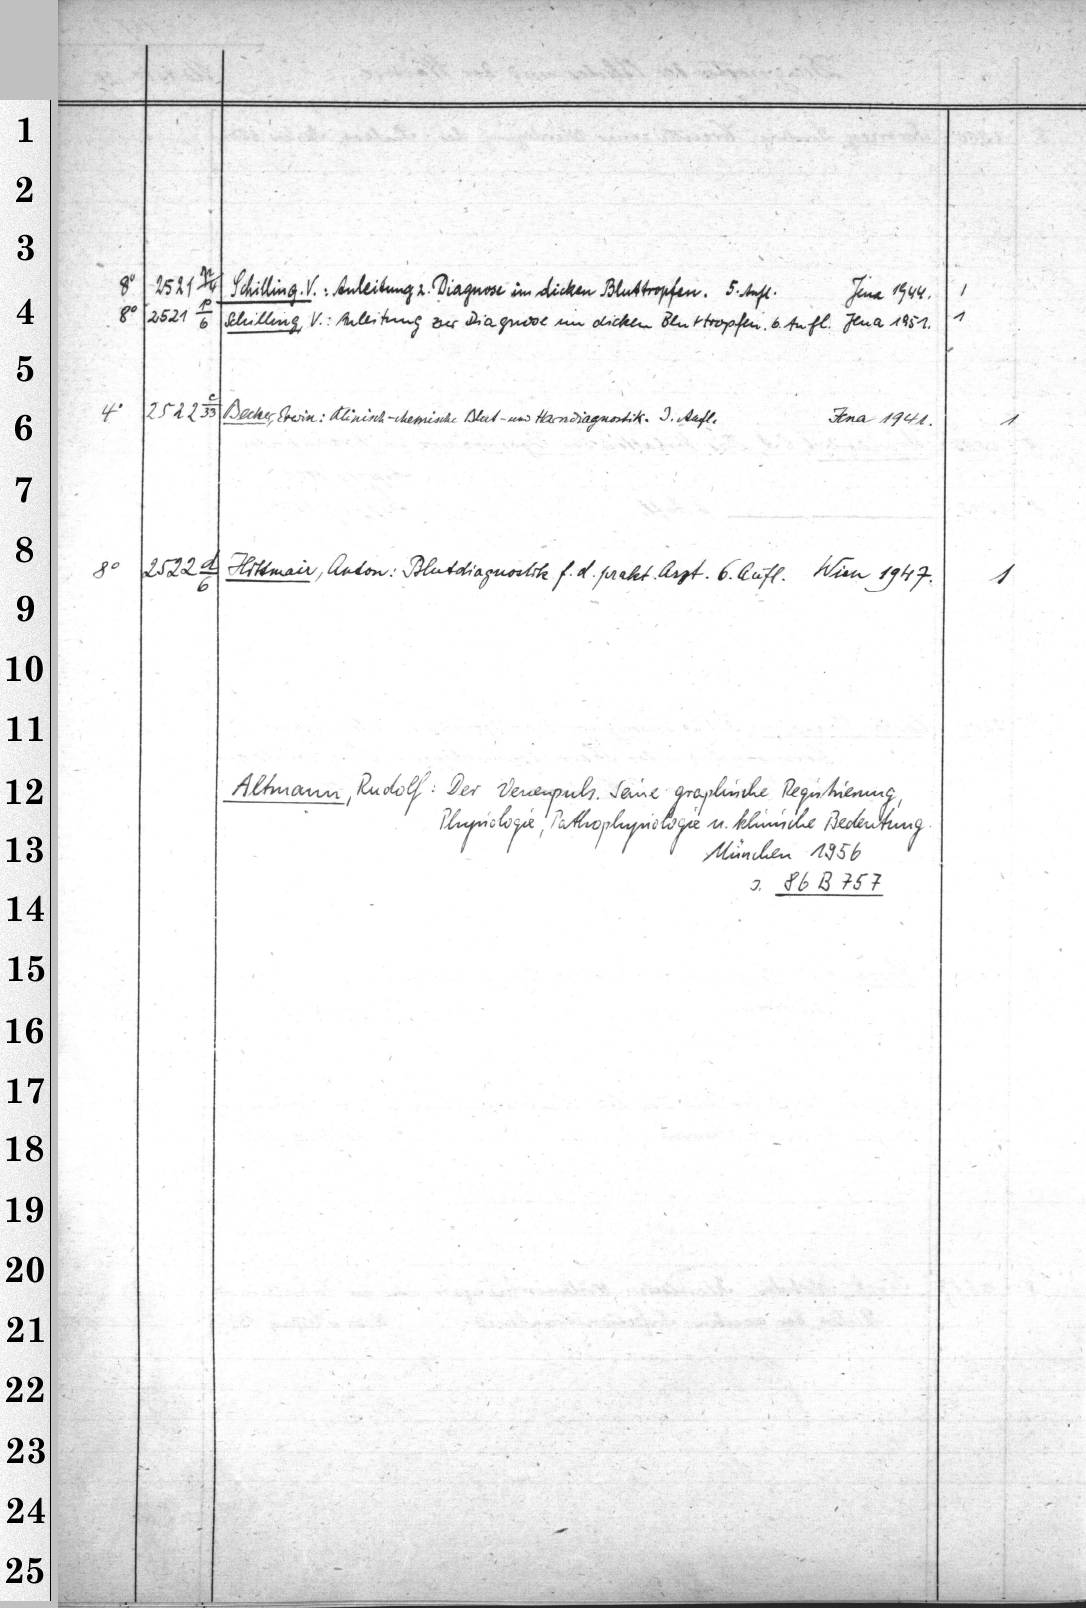 1
2
3
8° 2521 n/4 Schilling. V.: Anleitung z. Diagnose im dicken Bluttropfen. 5. Aufl. Jena 1944. 1
4
8° 2521 p/6 Schilling, V.: Anleitung zur Diagnose im dicken Bluttropfen. 6. Aufl. Jena 1951. 1
5
4° 2522 c/33 Becher, Erwin: Klinisch-chemische Blut- und Harndiagnostik. Aufl. Jena 1941. 1
6
7
8
8° 2522 d/6 Hittmair, Anton: Blutdiagnostik f. d. prakt. Arzt. 6. Aufl. Wien 1947. 1
9
10
11
12 Altmann, Rudolf: Der Venenpuls. Seine graphische Registrierung,
Physiologie, Pathophysiologie u. klinische Bedeutung.
13 München 1956
s. 86 B 757
14
15
16
17
18
19
20
21
22
23
24
25